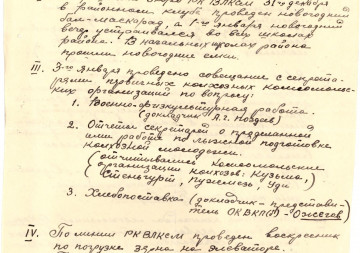 РК ВЛКСМ 31го декабря
в районном клубе проведен новогодний
бал-маскарад, а 1го января новогодний
вечер устраивался во всех школах
района. В начальных школах района
прошли новогодние елки.
III. 3го января проведено совещание с секрета-
рями первичных колхозных комсомольс-
ких организаций по вопросу:
1. Военно-физкультурная работа.
(докладчик А.г. Поздеев)
2. Отчеты секретарей о проделанной
ими работе по лыжной подготовке
колхозной молодежи.
(отчитывались комсомольские
организации колхозов: Кузьма,
Стеньгурт, Пусмезь, Уди
3. Хлебопоставка (докладчик - представи-
тель ОК ВКП(б) - Ожегов
IV. По линии РК ВЛКСМ проведен воскресник
по погрузке зерна на элеваторе.